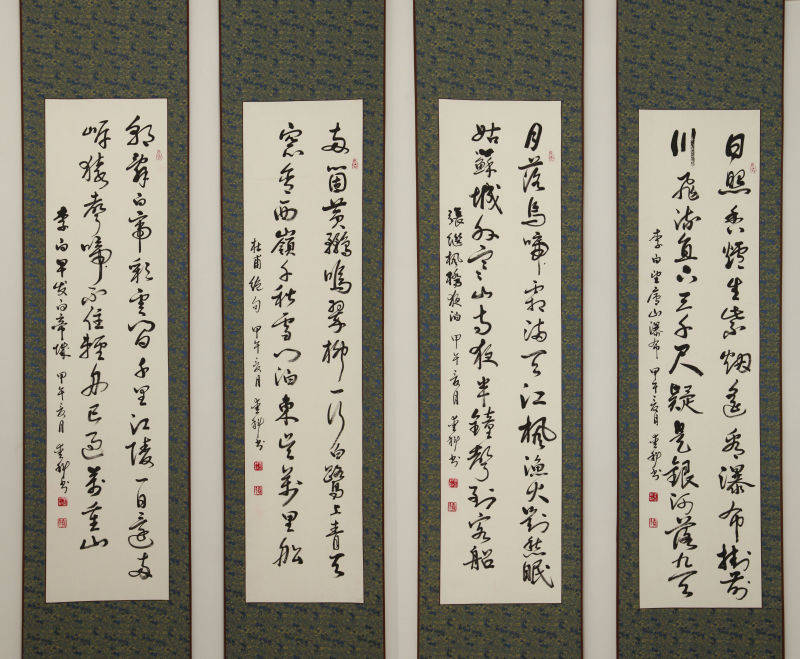 日照香爐生紫烟遥看瀑布掛前
川飛流直下三千尺疑是銀河落九天
李白望廬山瀑布 甲午亥月 书
月落烏啼霜满天江楓漁火對愁眠
姑蘇城外寒山寺夜半鐘聲到客船
張继楓橋夜泊 甲午亥月 书
两箇黄鸝鳴翠柳一行白鷺上青天
窓含西嶺千秋雪门泊東吴萬里船
杜甫绝句 甲午亥月 书
朝辞白帝彩雲间千里江陵一日還两
岸猿聲啼不住輕舟已过萬重山
李白早发白帝城 甲午亥月 书